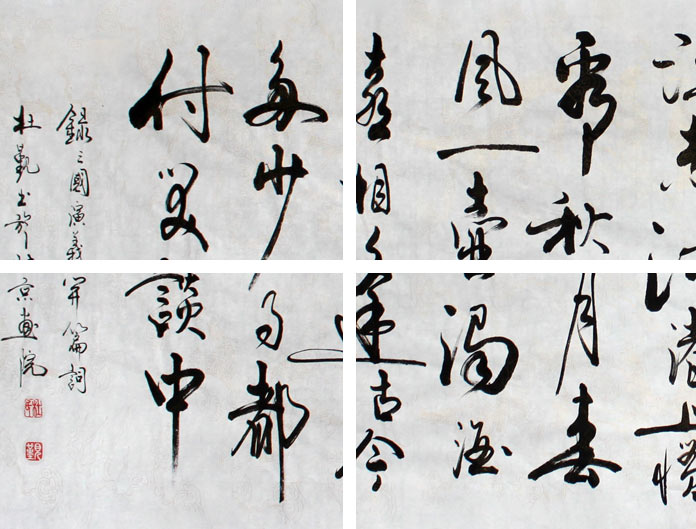 渚上慣
看秋月春
風一壺濁酒
喜相逢古今
多少事都
付笑談中
錄三國演義開篇詞
杜觐书於京画院